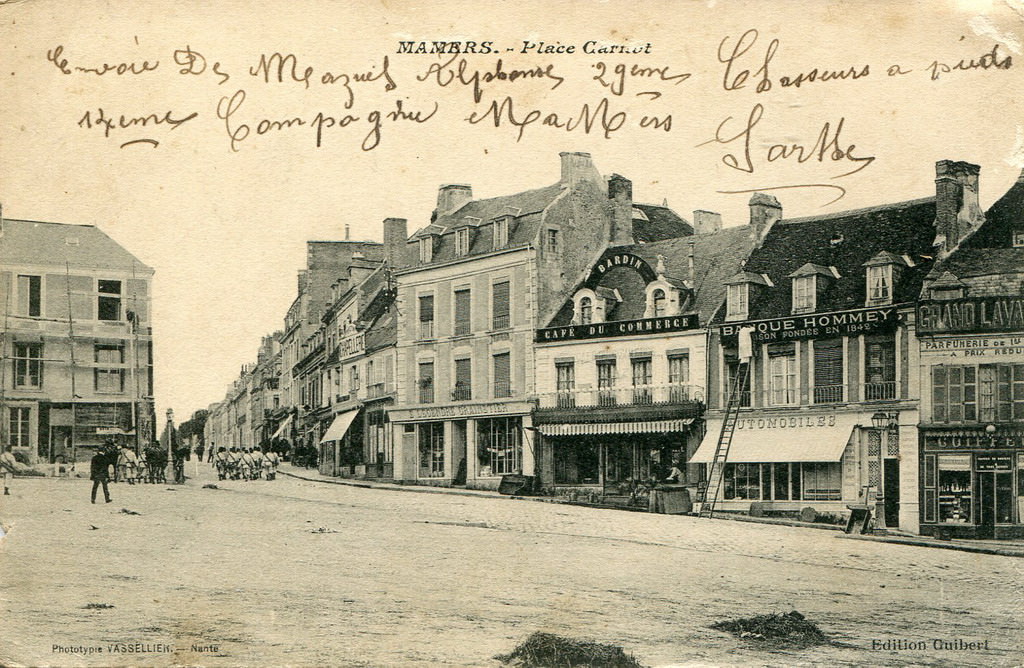 MAMERS. - Place Carnot
Envoie De Mazuel Alphonse 2geme Chasseurs a pieds
14eme Compagnie MaMers Sarthe
BARDIN
CAFÉ DU COMMERCE
BANQUE HOMMEY
MAISON FONDÉE EN 1842
AUTOMOBILES
GRAND LAVA
PARFUMERIE DE 1
A PRIX REDU
COIFFE
Phototypie VASSELLIER. — Nantes
Edition Guibert